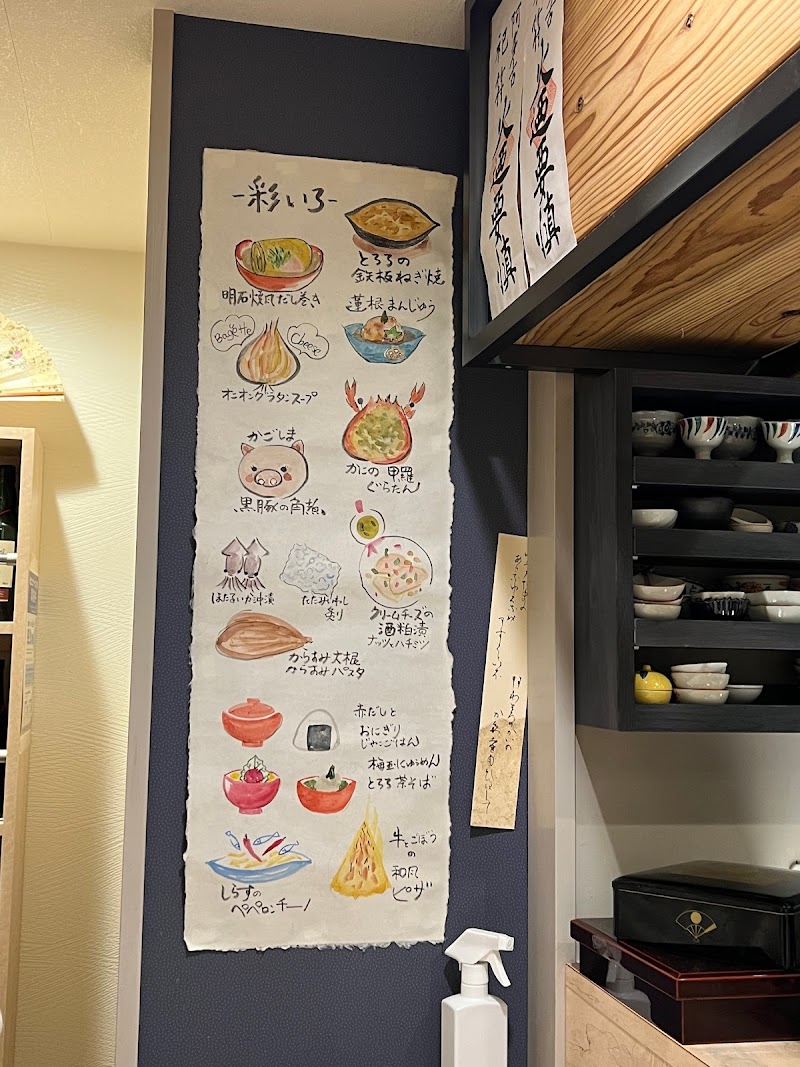 -彩いろ-
とろろの
鉄板ねぎ焼
明石焼風だし巻き
蓮根まんじゅう
Bagette
Cheese
オニオングラタンスープ
かにの甲羅
ぐらたん
かごしま
黒豚の角煮
ほたるいか沖漬
たたみいわし
炙り
クリームチーズの
酒粕漬
ナッツとハチミツ
からすみ大根
からすみパスタ
赤だしと
おにぎり
じゃこごはん
梅玉にゅうめん
とろろ茶そば
しらすの
ペペロンチーノ
牛とごぼう
の
和風
ピザ
火迺要慎
火迺要慎